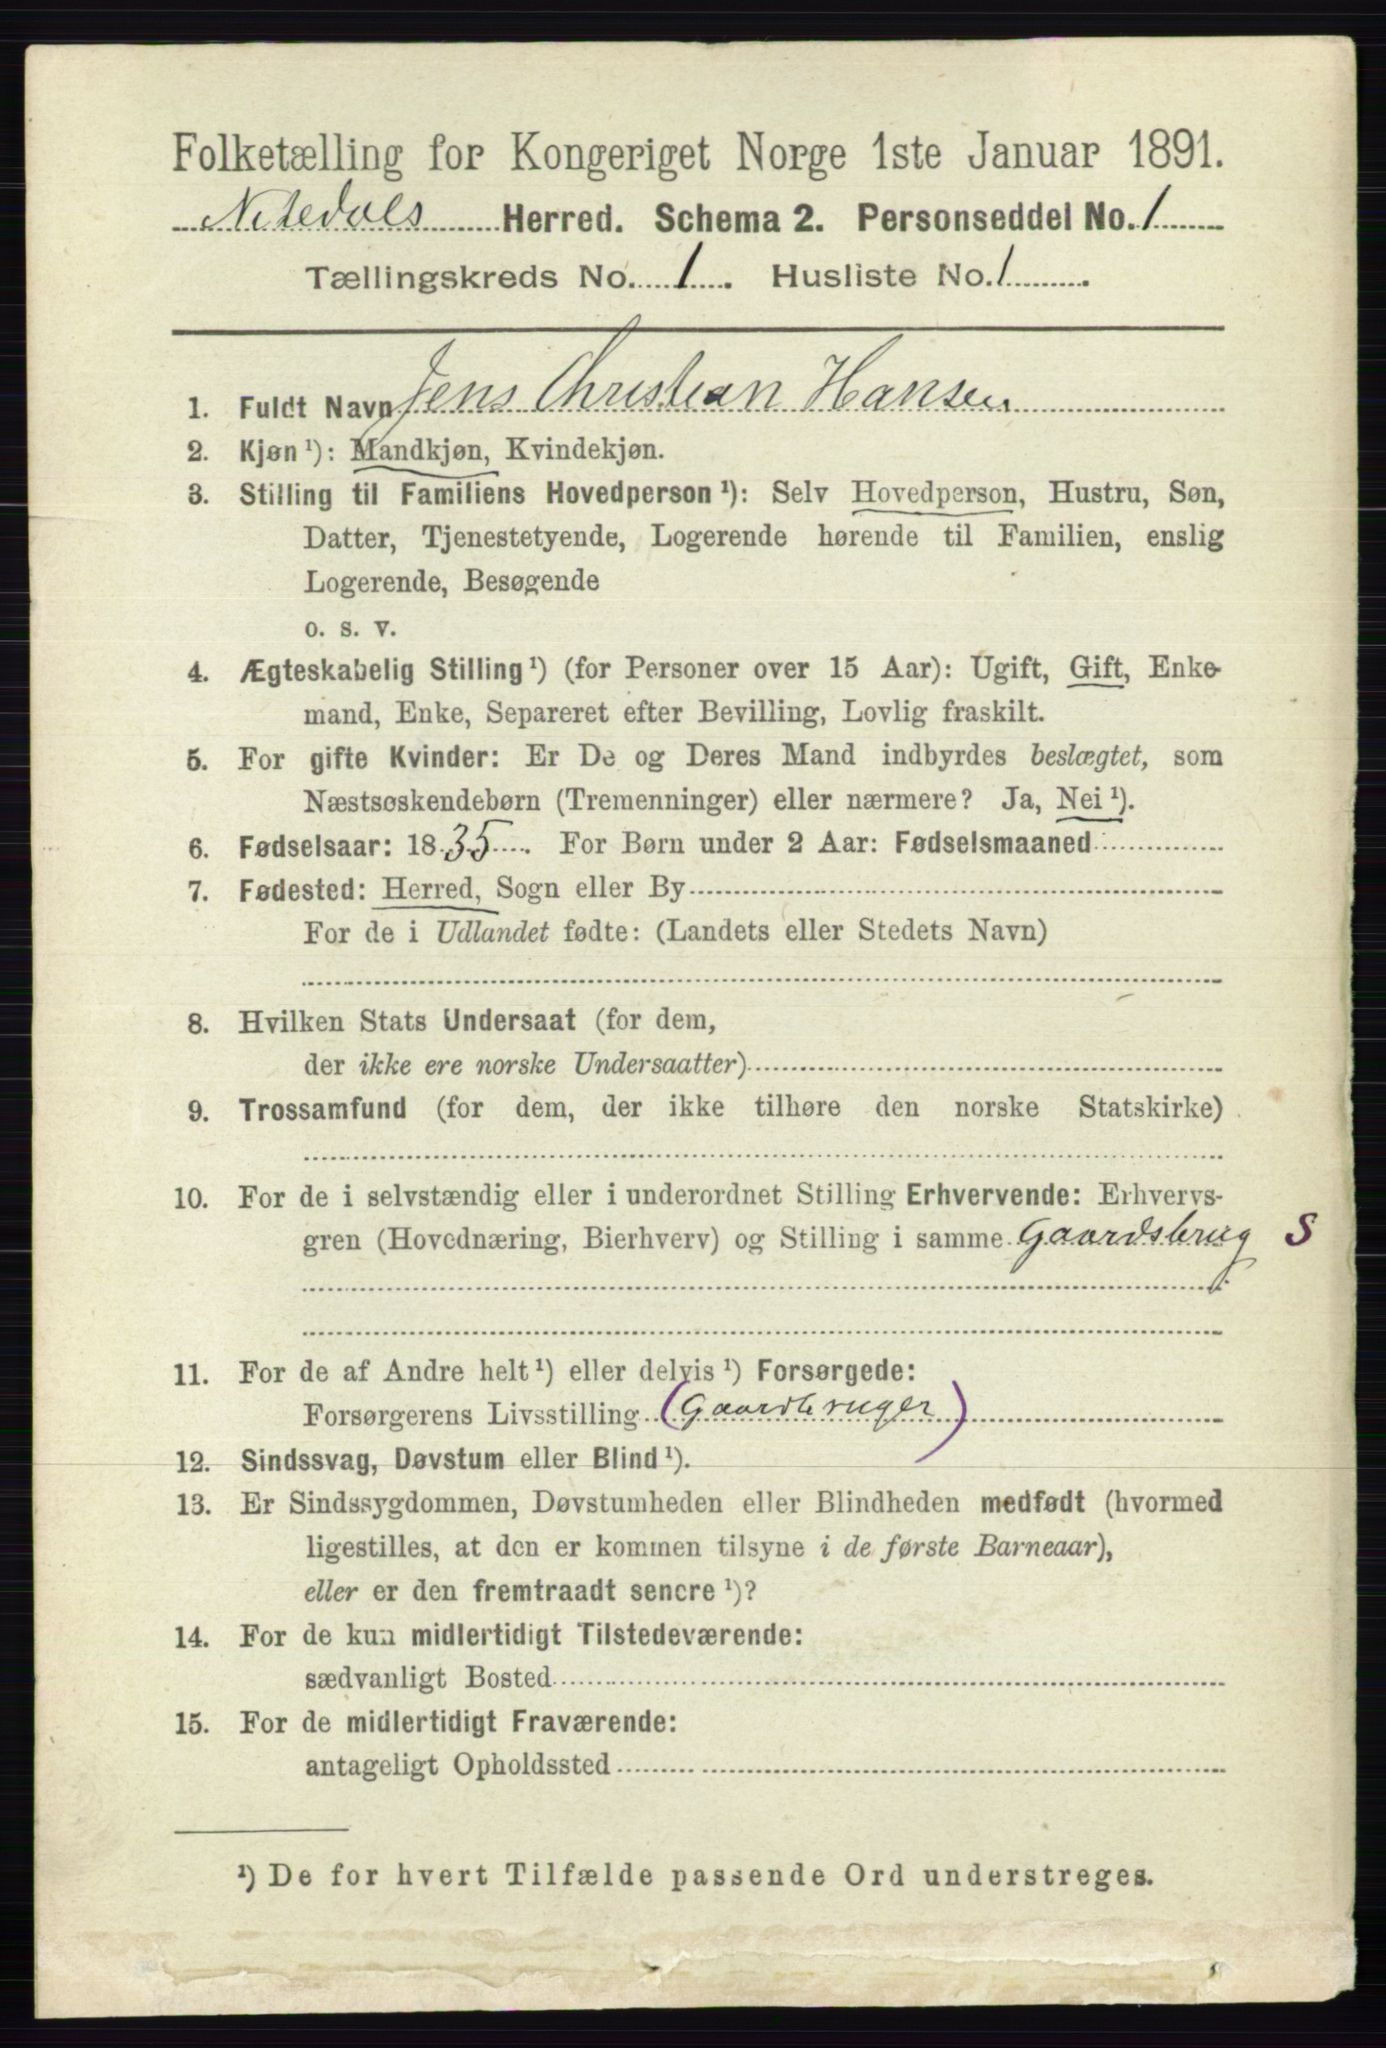 Folketælling for Kongeriget Norge 1ste Januar 1891.
Nitedals Herred. Schema 2. Personseddel No. 1
Tællingskreds No. 1. Husliste No. 1.
1. Fuldt Navn Jens Christian Hansen
2. Kjøn ¹): Mandkjøn, Kvindekjøn.
3. Stilling til Familiens Hovedperson ¹): Selv Hovedperson, Hustru, Søn,
Datter, Tjenestetyende, Logerende hørende til Familien, enslig
Logerende, Besøgende
o. s. v.
4. Ægteskabelig Stilling ¹) (for Personer over 15 Aar): Ugift, Gift, Enke-
mand, Enke, Separeret efter Bevilling, Lovlig fraskilt.
5. For gifte Kvinder: Er De og Deres Mand indbyrdes beslægtet, som
Næstsøskendebørn (Tremenninger) eller nærmere? Ja, Nei ¹).
6. Fødselsaar: 1835. For Børn under 2 Aar: Fødselsmaaned
7. Fødested: Herred, Sogn eller By
For de i Udlandet fødte: (Landets eller Stedets Navn)
8. Hvilken Stats Undersaat (for dem,
der ikke ere norske Undersaatter)
9. Trossamfund (for dem, der ikke tilhøre den norske Statskirke)
10. For de i selvstændig eller i underordnet Stilling Erhvervende: Erhvervs-
gren (Hovednæring, Bierhverv) og Stilling i samme Gaardsbrug S
11. For de af Andre helt ¹) eller delvis ¹) Forsørgede:
Forsørgerens Livsstilling (Gaardbruger)
12. Sindssvag, Døvstum eller Blind ¹).
13. Er Sindssygdommen, Døvstumheden eller Blindheden medfødt (hvormed
ligestilles, at den er kommen tilsyne i de første Barneaar),
eller er den fremtraadt senere ¹)?
14. For de kun midlertidigt Tilstedeværende:
sædvanligt Bosted
15. For de midlertidigt Fraværende:
antageligt Opholdssted
¹) De for hvert Tilfælde passende Ord understreges.